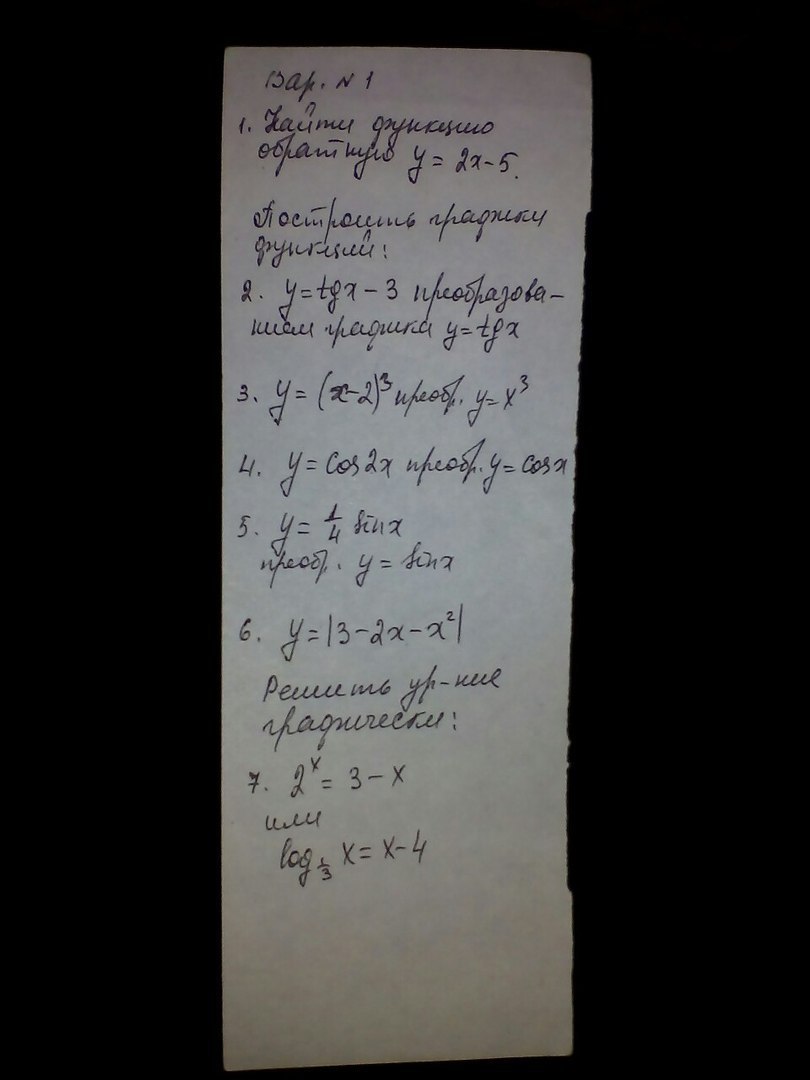 Вар. N 1
1. Найти функцию
обратную y = 2x-5.
Построить графики
функций:
2. y=tgx-3 преобразова-
нием графика y=tgx
3. y=(x-2)³ преобр. y=x³
4. y=cos2x преобр. y=cosx
5. y=1/4 sinx
преобр. y=sinx
6. y=|3-2x-x²|
Решить ур-ние
графически:
7. 2ˣ=3-x
или
log_{1/3} x=x-4